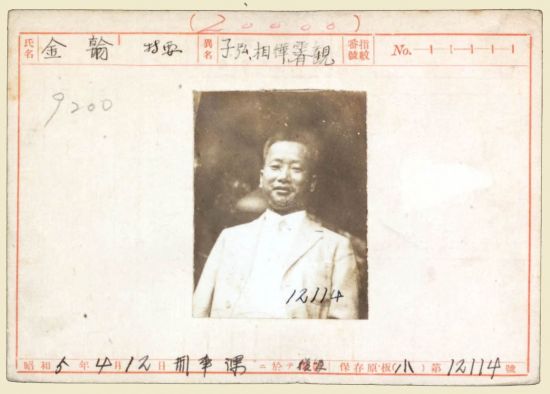 (20000)
氏名 金翰 特要 異名 子弘 相燁 霽観 指紋番號 No.
9200
12114
昭和5年4月12日 刑事課ニ於テ複寫 保存原板(小)第12114號